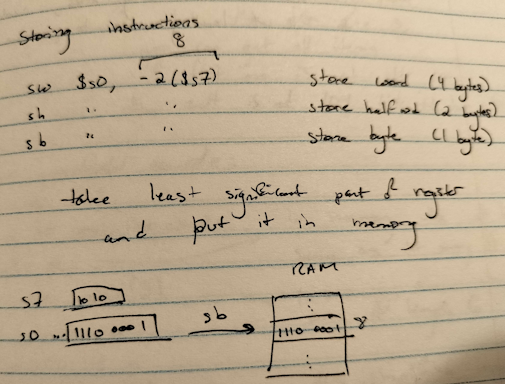 Storing instructions
8
sw $s0, -2($s7) store word (4 bytes)
sh " " store half wd (2 bytes)
sb " " store byte (1 byte)
take least significant part of register
and put it in memory
RAM
s7 1010
s0 ...1110 0001 sb 1110 0001 8